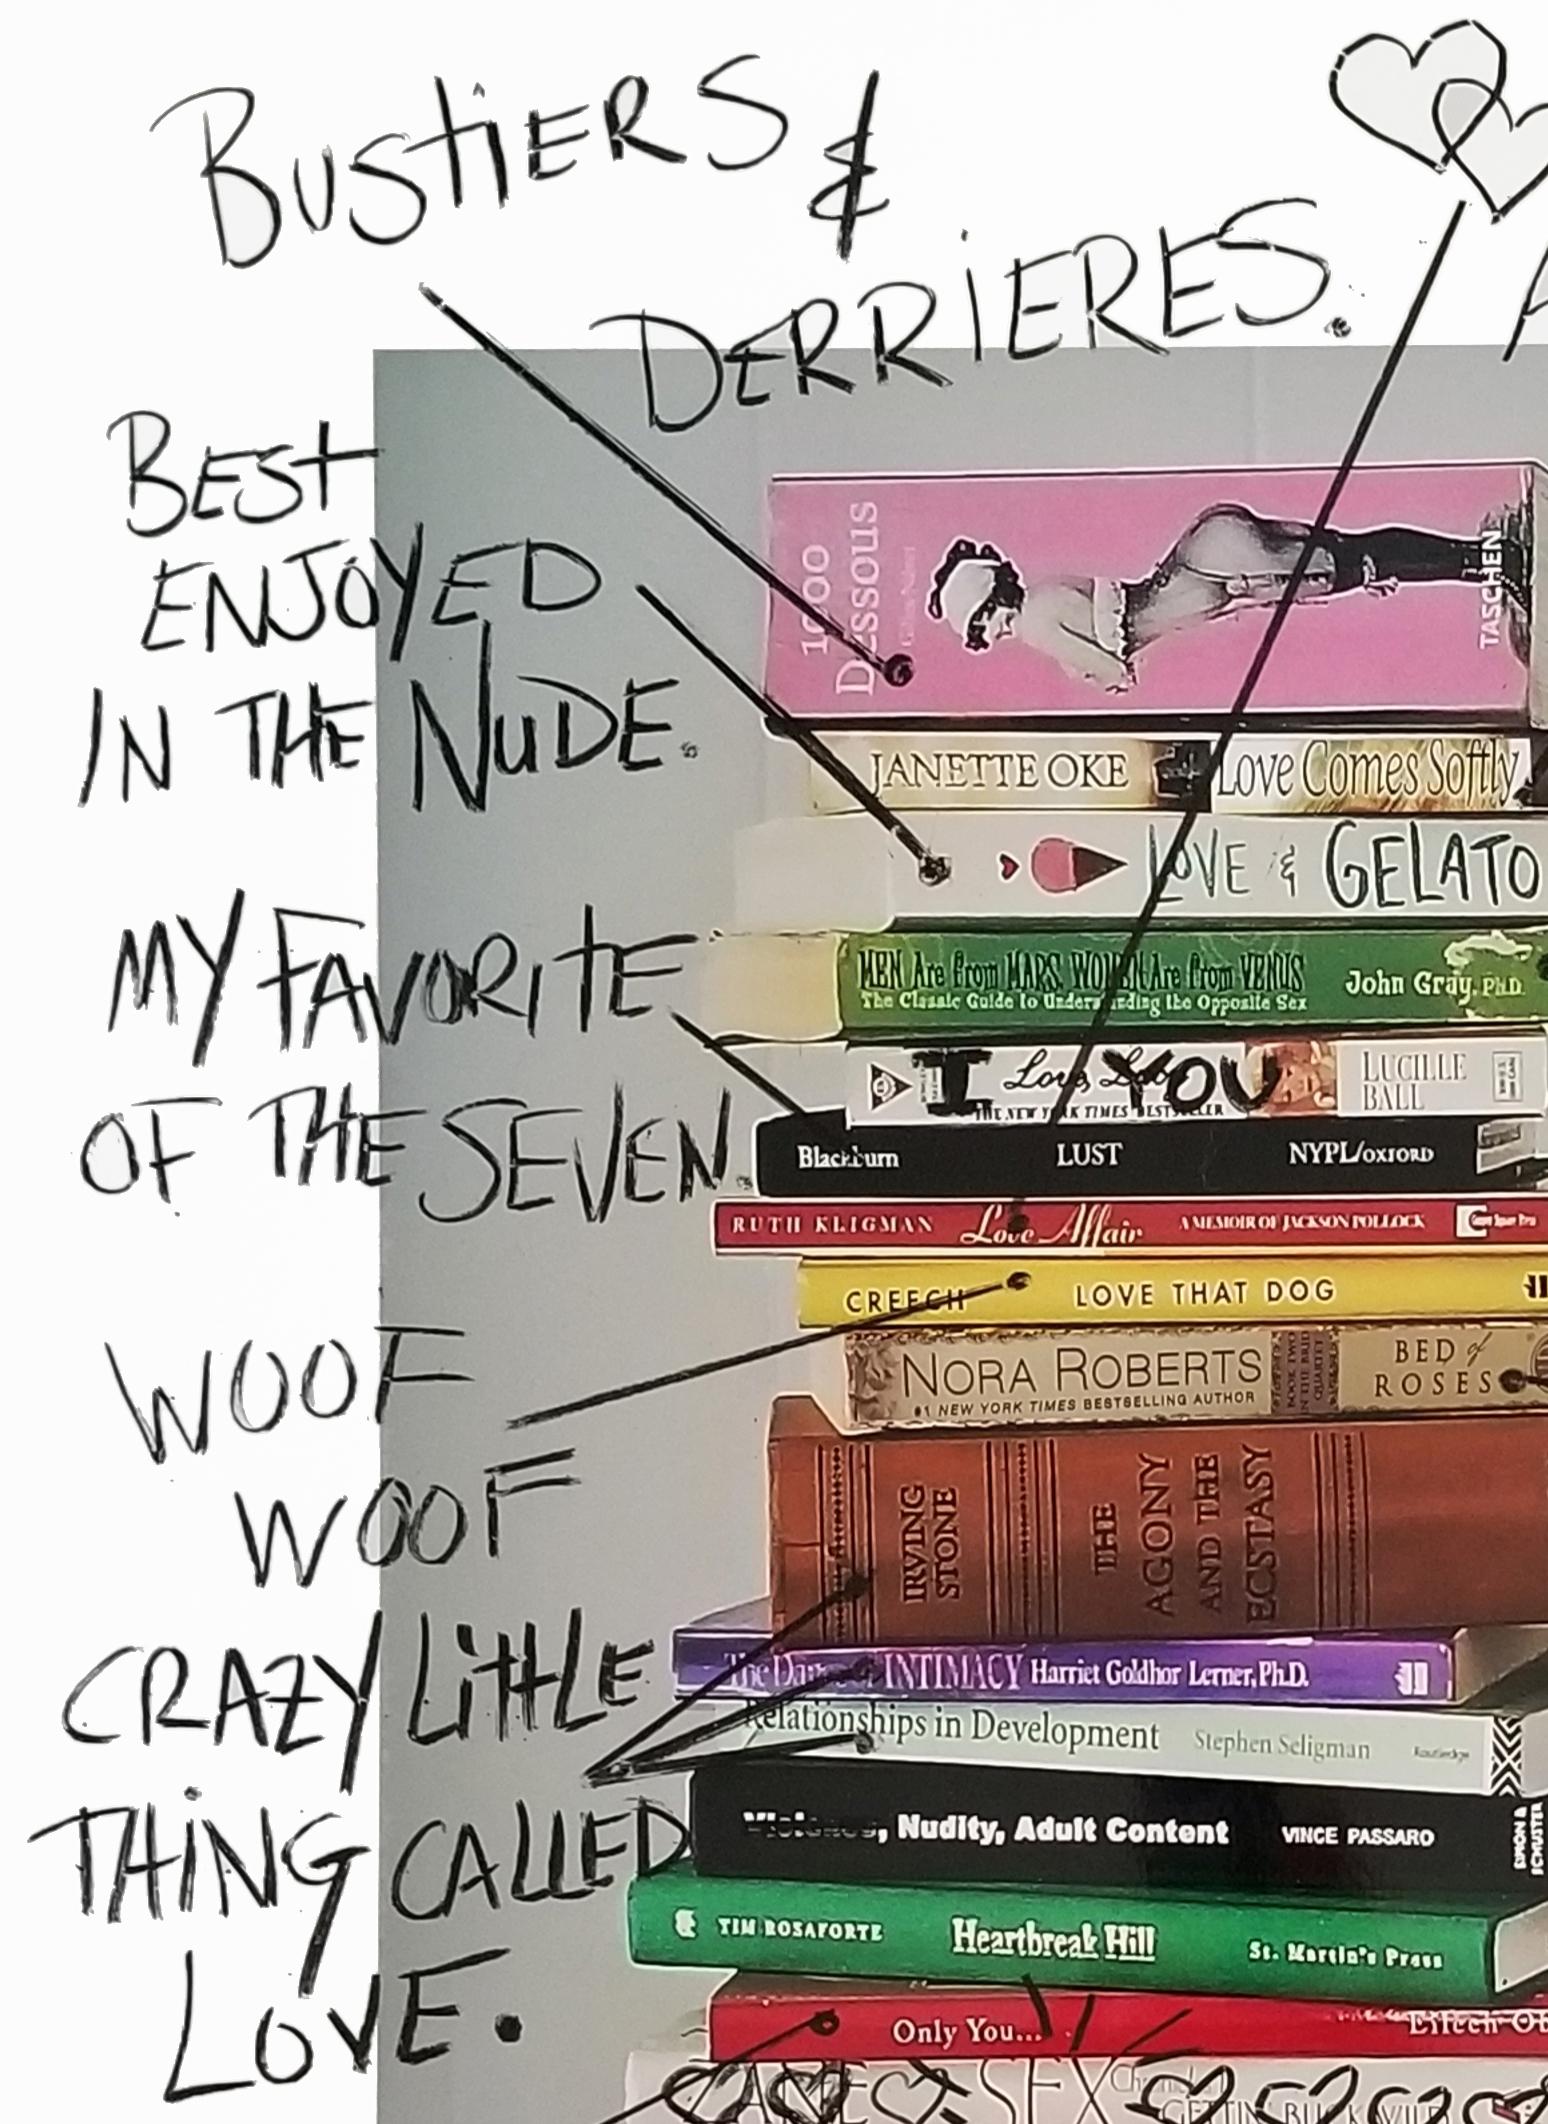 BUSTIERS &
DERRIERES.
BEST
ENJOYED
IN THE NUDE.
MY FAVORITE
OF THE SEVEN.
WOOF
WOOF
CRAZY LITTLE
THING CALLED
LOVE.
1000
Dessous
TASCHEN
JANETTE OKE Love Comes Softly
LOVE & GELATO
MEN Are from MARS, WOMEN Are from VENUS John Gray, Ph.D.
The Classic Guide to Understanding the Opposite Sex
I Love, YOU LUCILLE BALL
THE NEW YORK TIMES BESTSELLER
Blackburn LUST NYPL/OXFORD
RUTH KLIGMAN Love Affair A MEMOIR OF JACKSON POLLOCK
CREECH LOVE THAT DOG
NORA ROBERTS BED of ROSES
#1 NEW YORK TIMES BESTSELLING AUTHOR
BOOK TWO IN THE BRIDE QUARTET
IRVING STONE THE AGONY AND THE ECSTASY
The Dance of INTIMACY Harriet Goldhor Lerner, Ph.D.
Relationships in Development Stephen Seligman Routledge
, Nudity, Adult Content VINCE PASSARO SIMON & SCHUSTER
TIM ROSAFORTE Heartbreak Hill St. Martin's Press
Only You...
SEX